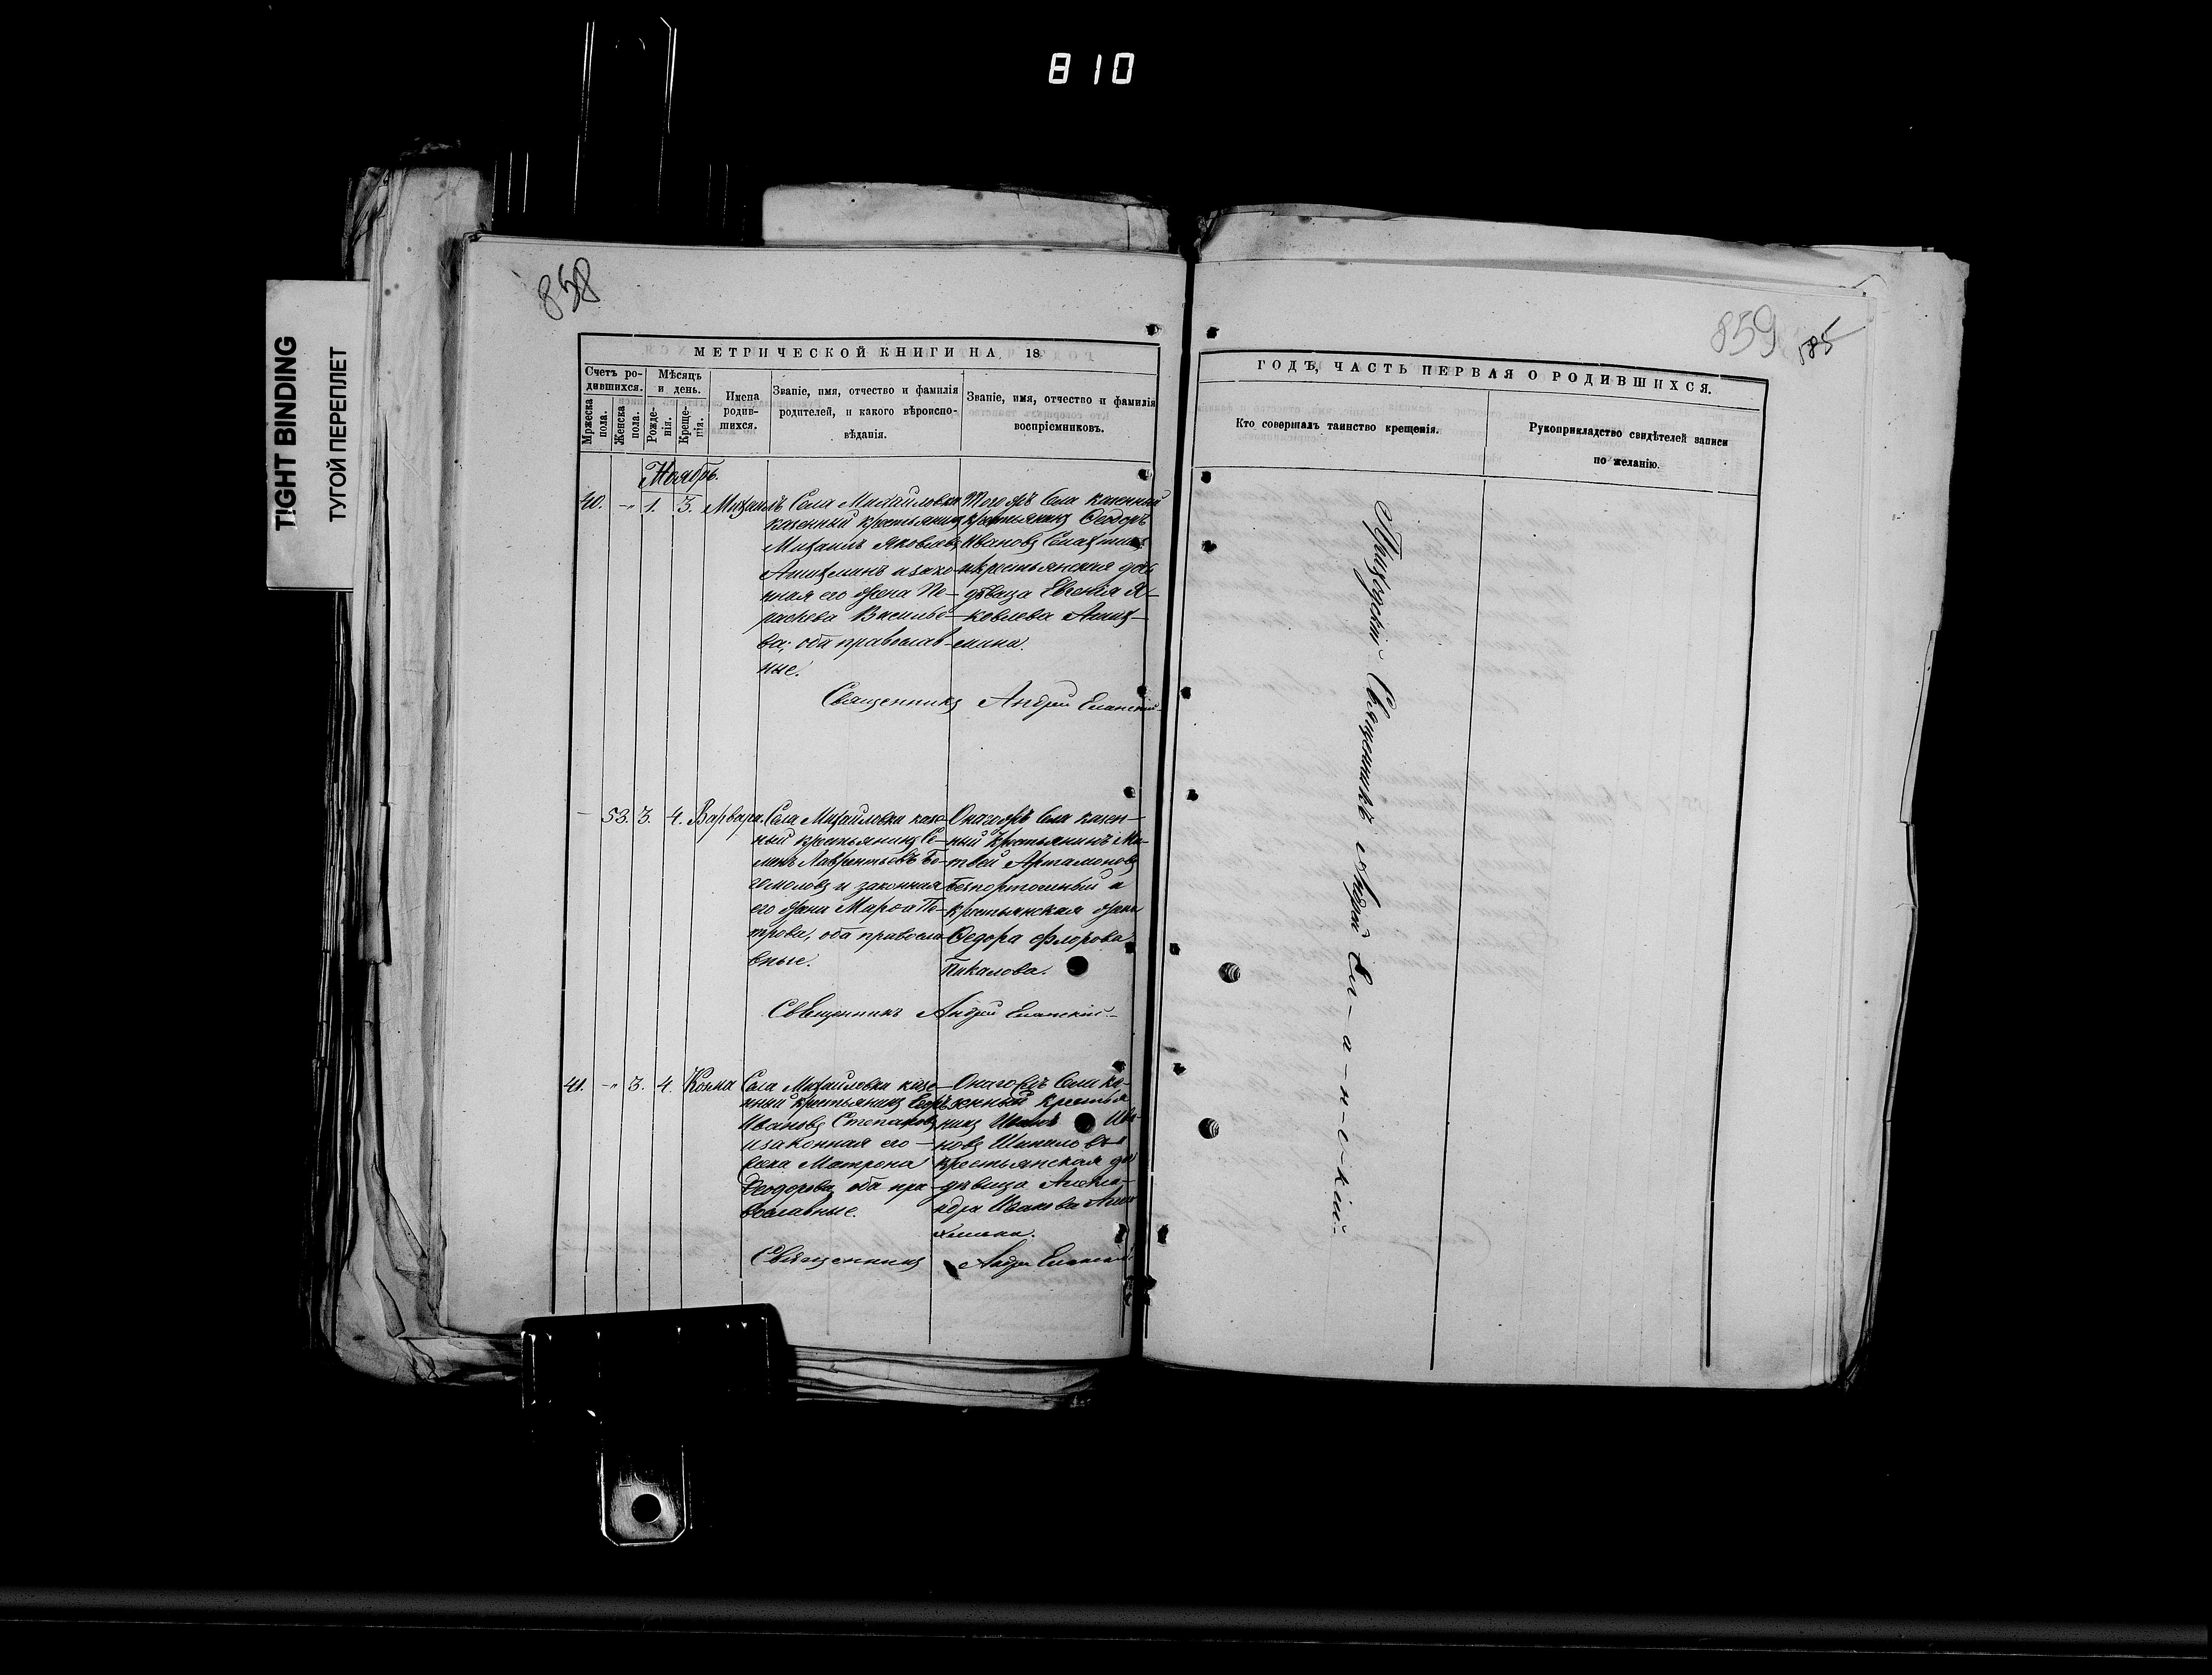 810
TIGHT BINDING
ТУГОЙ ПЕРЕПЛЕТ
858
МЕТРИЧЕСКОЙ КНИГИ НА 18
Счетъ родившихся.
Мѣсяцъ и день.
Мужеска пола.
Женска пола.
Рожденія.
Крещенія.
Имена родившихся.
Званіе, имя, отчество и фамилія родителей, и какого вѣроисповѣданія.
Званіе, имя, отчество и фамилія воспріемниковъ.
Ноябрь.
40. -"- 1. 3. Михаилъ
Села Михайловки
казенный крестьянинъ
Михаилъ Яковлевъ
и зако-
нная его жена Пе-
раскева Василье-
ва; оба православ-
ные.
Того жъ Села казенный
крестьянинъ Феодоръ
Ивановъ
и крестьянская дочь
дѣвица Евгенія Я-
ковлева
Священникъ Андрей Еланскій
53. 3. 4. Варвара.
Села Михайловки казе-
ный крестьянинъ Се-
менъ Лаврентьевъ Бо-
гомоловъ и законная
его жена Марфа Пе-
трова, оба правосла-
вные.
Онагожъ Села казен-
ный крестьянинъ Ма-
твей Артамоновъ
Безпортошный и
крестьянская жена
Федора Флорова
Пикалова.
Священникъ Андрей Еланскій
41. -"- 3. 4. Козма
Села Михайловки казе-
нный крестьянинъ
Ивановъ Степановъ
и законная его
жена Матрона
Феодорова, оба пра-
вославные.
Онагожъ Села ка-
зенный крестья
нинъ Иванъ Ива-
новъ Шикаловъ и
крестьянская до
дѣвица Алекса-
ндра Иванова
Священникъ Андрей Еланскій
859
585
ГОДЪ, ЧАСТЬ ПЕРВАЯ О РОДИВШИХСЯ.
Кто совершалъ таинство крещенія.
Рукоприкладство свидѣтелей записи по желанію.
Священникъ Андрей Ел-а-н-с-кій